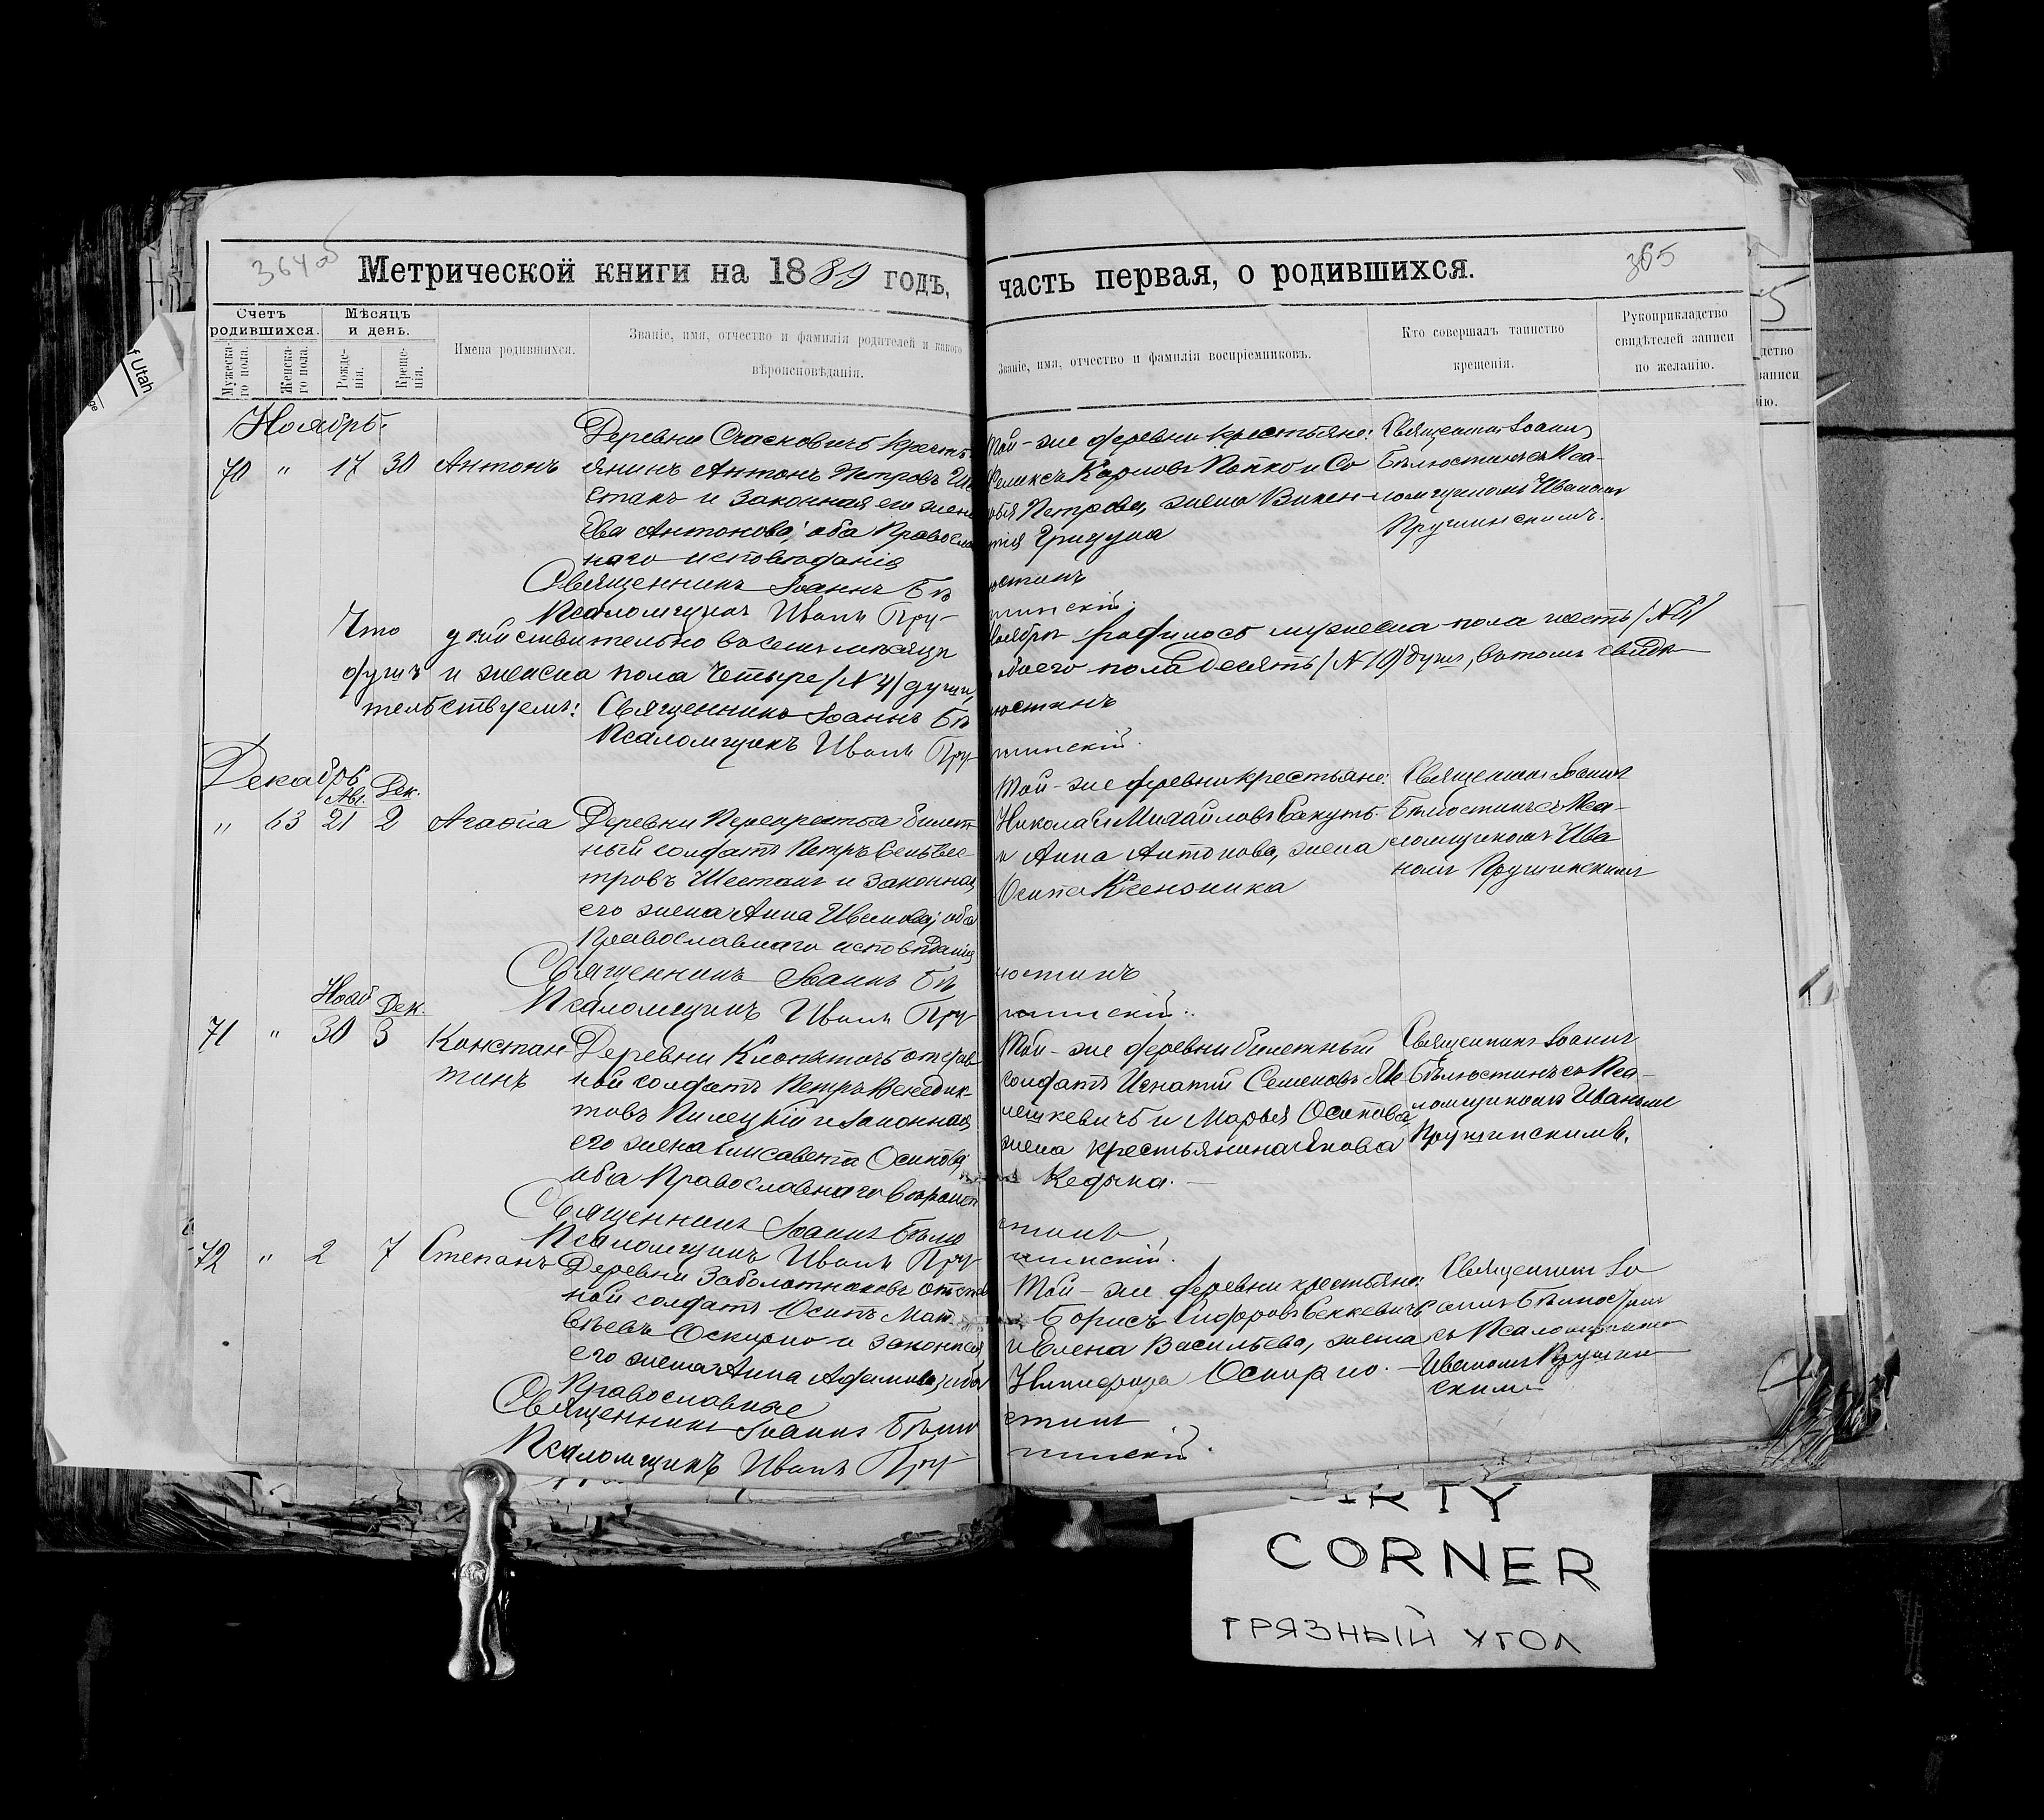 364об
365
Метрической книги на 1889 годъ, часть первая, о родившихся.
Счетъ родившихся.
Мужеска-го пола.
Женска-го пола.
Мѣсяцъ и день.
Рожде-нія.
Креще-нія.
Имена родившихся.
Званіе, имя, отчество и фамилія родителей и какого
вѣроисповѣданія.
Званіе, имя, отчество и фамилія воспріемниковъ.
Кто совершалъ таинство
крещенія.
Рукоприкладство
свидѣтелей записи
по желанію.
Ноябрь.
70 " 17 30 Антонъ
Деревни крестъ
янинъ Антонъ Петровъ Ше
стакъ и законная его жена
Ева Антонова; оба Православ
наго исповѣданія
Той-же деревни крестьяне:
Феликсъ Карловъ Попко и Со
фья Петрова, жена Викен
тія Гридуша
Священникъ Іоаннъ
Бѣлюстинъ съ Пса-
ломщикомъ Иваномъ
Прушинскимъ.
Священникъ Іоаннъ Бѣлюстинъ
Псаломщикъ Иванъ Прушинскій.
Что дѣйствительно въ семъ мѣсяцѣ Ноябрѣ родилось мужеска пола шесть /№ 6/
душъ и женска пола четыре /№ 4/ души, обоего пола десять /№ 10/ душъ, въ томъ свидѣ-
тельствуемъ: Священникъ Іоаннъ Бѣлюстинъ
Псаломщикъ Иванъ Прушинскій.
Декабрь
Авг. Дек.
" 63 21 2 Агафія
Деревни билет
ный солдатъ Петръ Сельвес-
тровъ Шестакъ и законная
его жена Анна Иванова; оба
Православнаго исповѣданія
Той-же деревни крестьяне:
Николай Михайловъ Бакутъ
и Анна Антонова, жена
Осипа Ксензика
Священникъ Іоаннъ
Бѣлюстинъ съ Пса-
ломщикомъ Ива
номъ Прушинскимъ
Священникъ Іоаннъ Бѣлюстинъ
Псаломщикъ Иванъ Прушинскій.
Нояб Дек.
71 " 30 3 Констан
тинъ
Деревни отстав
ной солдатъ Петръ Венедик-
товъ Пилецкій и законная
его жена Елисавета Осипова
оба Православнаго
Той-же деревни билетный
солдатъ Игнатій Семеновъ Ме
лешкевичъ и Марья Осипова
жена крестьянина Якова
Кедыка.
Священникъ Іоаннъ
Бѣлюстинъ съ Пса-
ломщикомъ Иваномъ
Прушинскимъ.
Священникъ Іоаннъ Бѣлюстинъ
Псаломщикъ Иванъ Прушинскій.
72 " 2 7 Степанъ
Деревни Заболотниковъ отстав
ной солдатъ Осипъ Мат
вѣевъ Оскирко и законная
его жена Анна Адамова, оба
Православные
Той-же деревни крестьяне:
Борисъ
и Елена Васильева, жена
Никифора Оскирко.
Священникъ Іо
аннъ Бѣлюстинъ
съ Псаломщикомъ
Иваномъ Прушин
скимъ
Священникъ Іоаннъ Бѣлюстинъ
Псаломщикъ Иванъ Прушинскій.
CORNER
ГРЯЗНЫЙ УГОЛ
f Utah